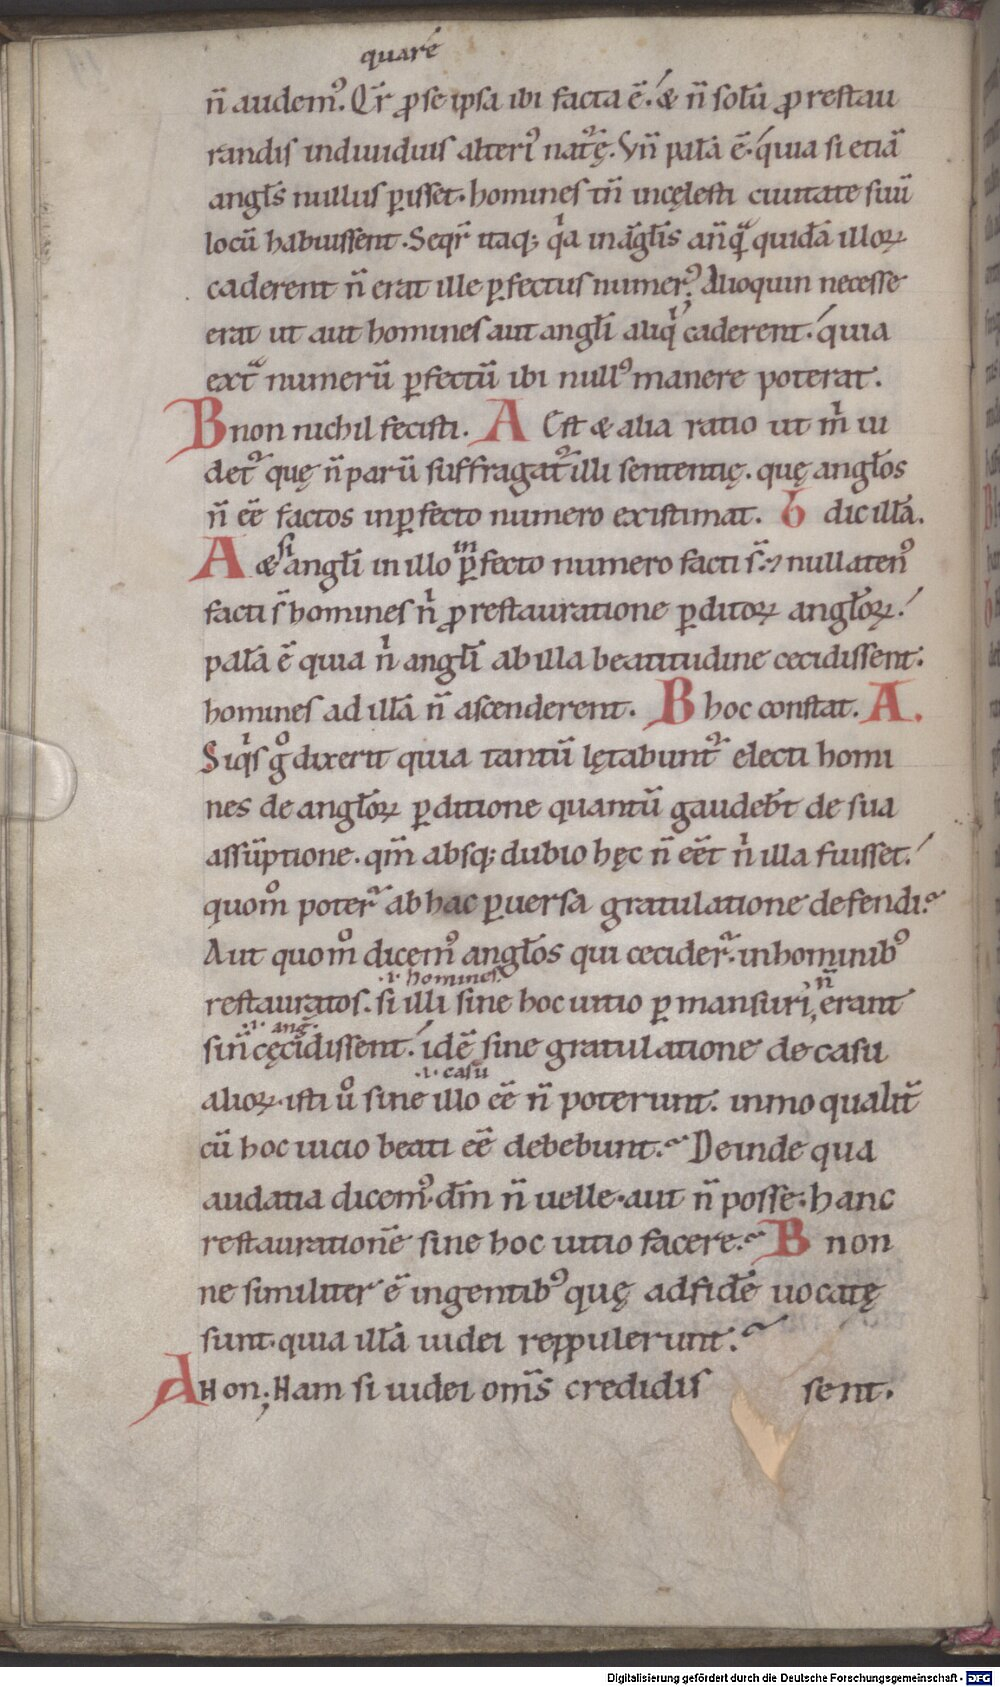 quare
n̄ audem᾽. Qr̄ ꝓ se ipsa ibi facta ē. & n̄ solū ꝓ restau
randis indiuiduis alteri᾽ natᷣę. Vn̄ palā ē. quia si etiā
angl̄s nullus ꝑisset. homines tn̄ incęlesti ciuitate suū
locū habuissent. Seqr̄ itaq; qͥa ināgl̄is anꝗͣ quidā illoꝝ
caderent n̄ erat ille ꝑfectus numer᾽. Alioquin necesse
erat ut aut homines aut angl̄i aliqͥ caderent. quia
extᷓ numerū ꝑfectū ibi null᾽ manere poterat.
B non nichil fecisti. A Est & alia ratio ut m̍ ui
detᷣ quę n̄ parū suffragatᷣ illi sententię. quę angl̄os
n̄ ēē factos inꝑfecto numero existimat. b dic illā.
si in
A & angl̄i in illo ꝑfecto numero facti s̄ ⁊ nullaten᾽
facti s̄ homines n̍ ꝓ restauratione ꝑditoꝝ angl̄oꝝ.
palā ē quia n̍ angl̄i ab illa beatitudine cecidissent.
homines ad illā n̄ ascenderent. B hoc constat. A.
Siqͥs gͦ dixerit quia tantū lętabuntᷣ electi homi
nes de angl̄oꝝ ꝑditione quantū gaudeb̄t de sua
assūptione. qm̄ absq; dubio hęc n̄ eēt n̍ illa fuisset.
quomͦ poterᷣ ab hac ꝑuersa gratulatione defendi.
Aut quomͦ dicem᾽ angl̄os qui ceciderᷣ. inhominib᾽
.i. homines. n̄
restauratos. si illi sine hoc uitio ꝑmansuri, erant
.i. anḡ.
sin̄ cęcidissent. idē sine gratulatione de casu
.i. casū
alioꝝ. isti uͦ sine illo ēē n̄ poterunt. inmo qualit̄
cū hoc uicio beati ēē debebunt. Deinde qua
audatia dicem᾽. dm̄ n̄ uelle. aut n̄ posse. hanc
restauratione̅ sine hoc uitio facere. B non
ne similiter ē ingentib᾽ quę adfidē uocatę
sunt. quia illā iudei reppulerunt.
A Non; Nam si iudei oms̄ credidis sent.
Digitalisierung gefördert durch die Deutsche Forschungsgemeinschaft - DFG